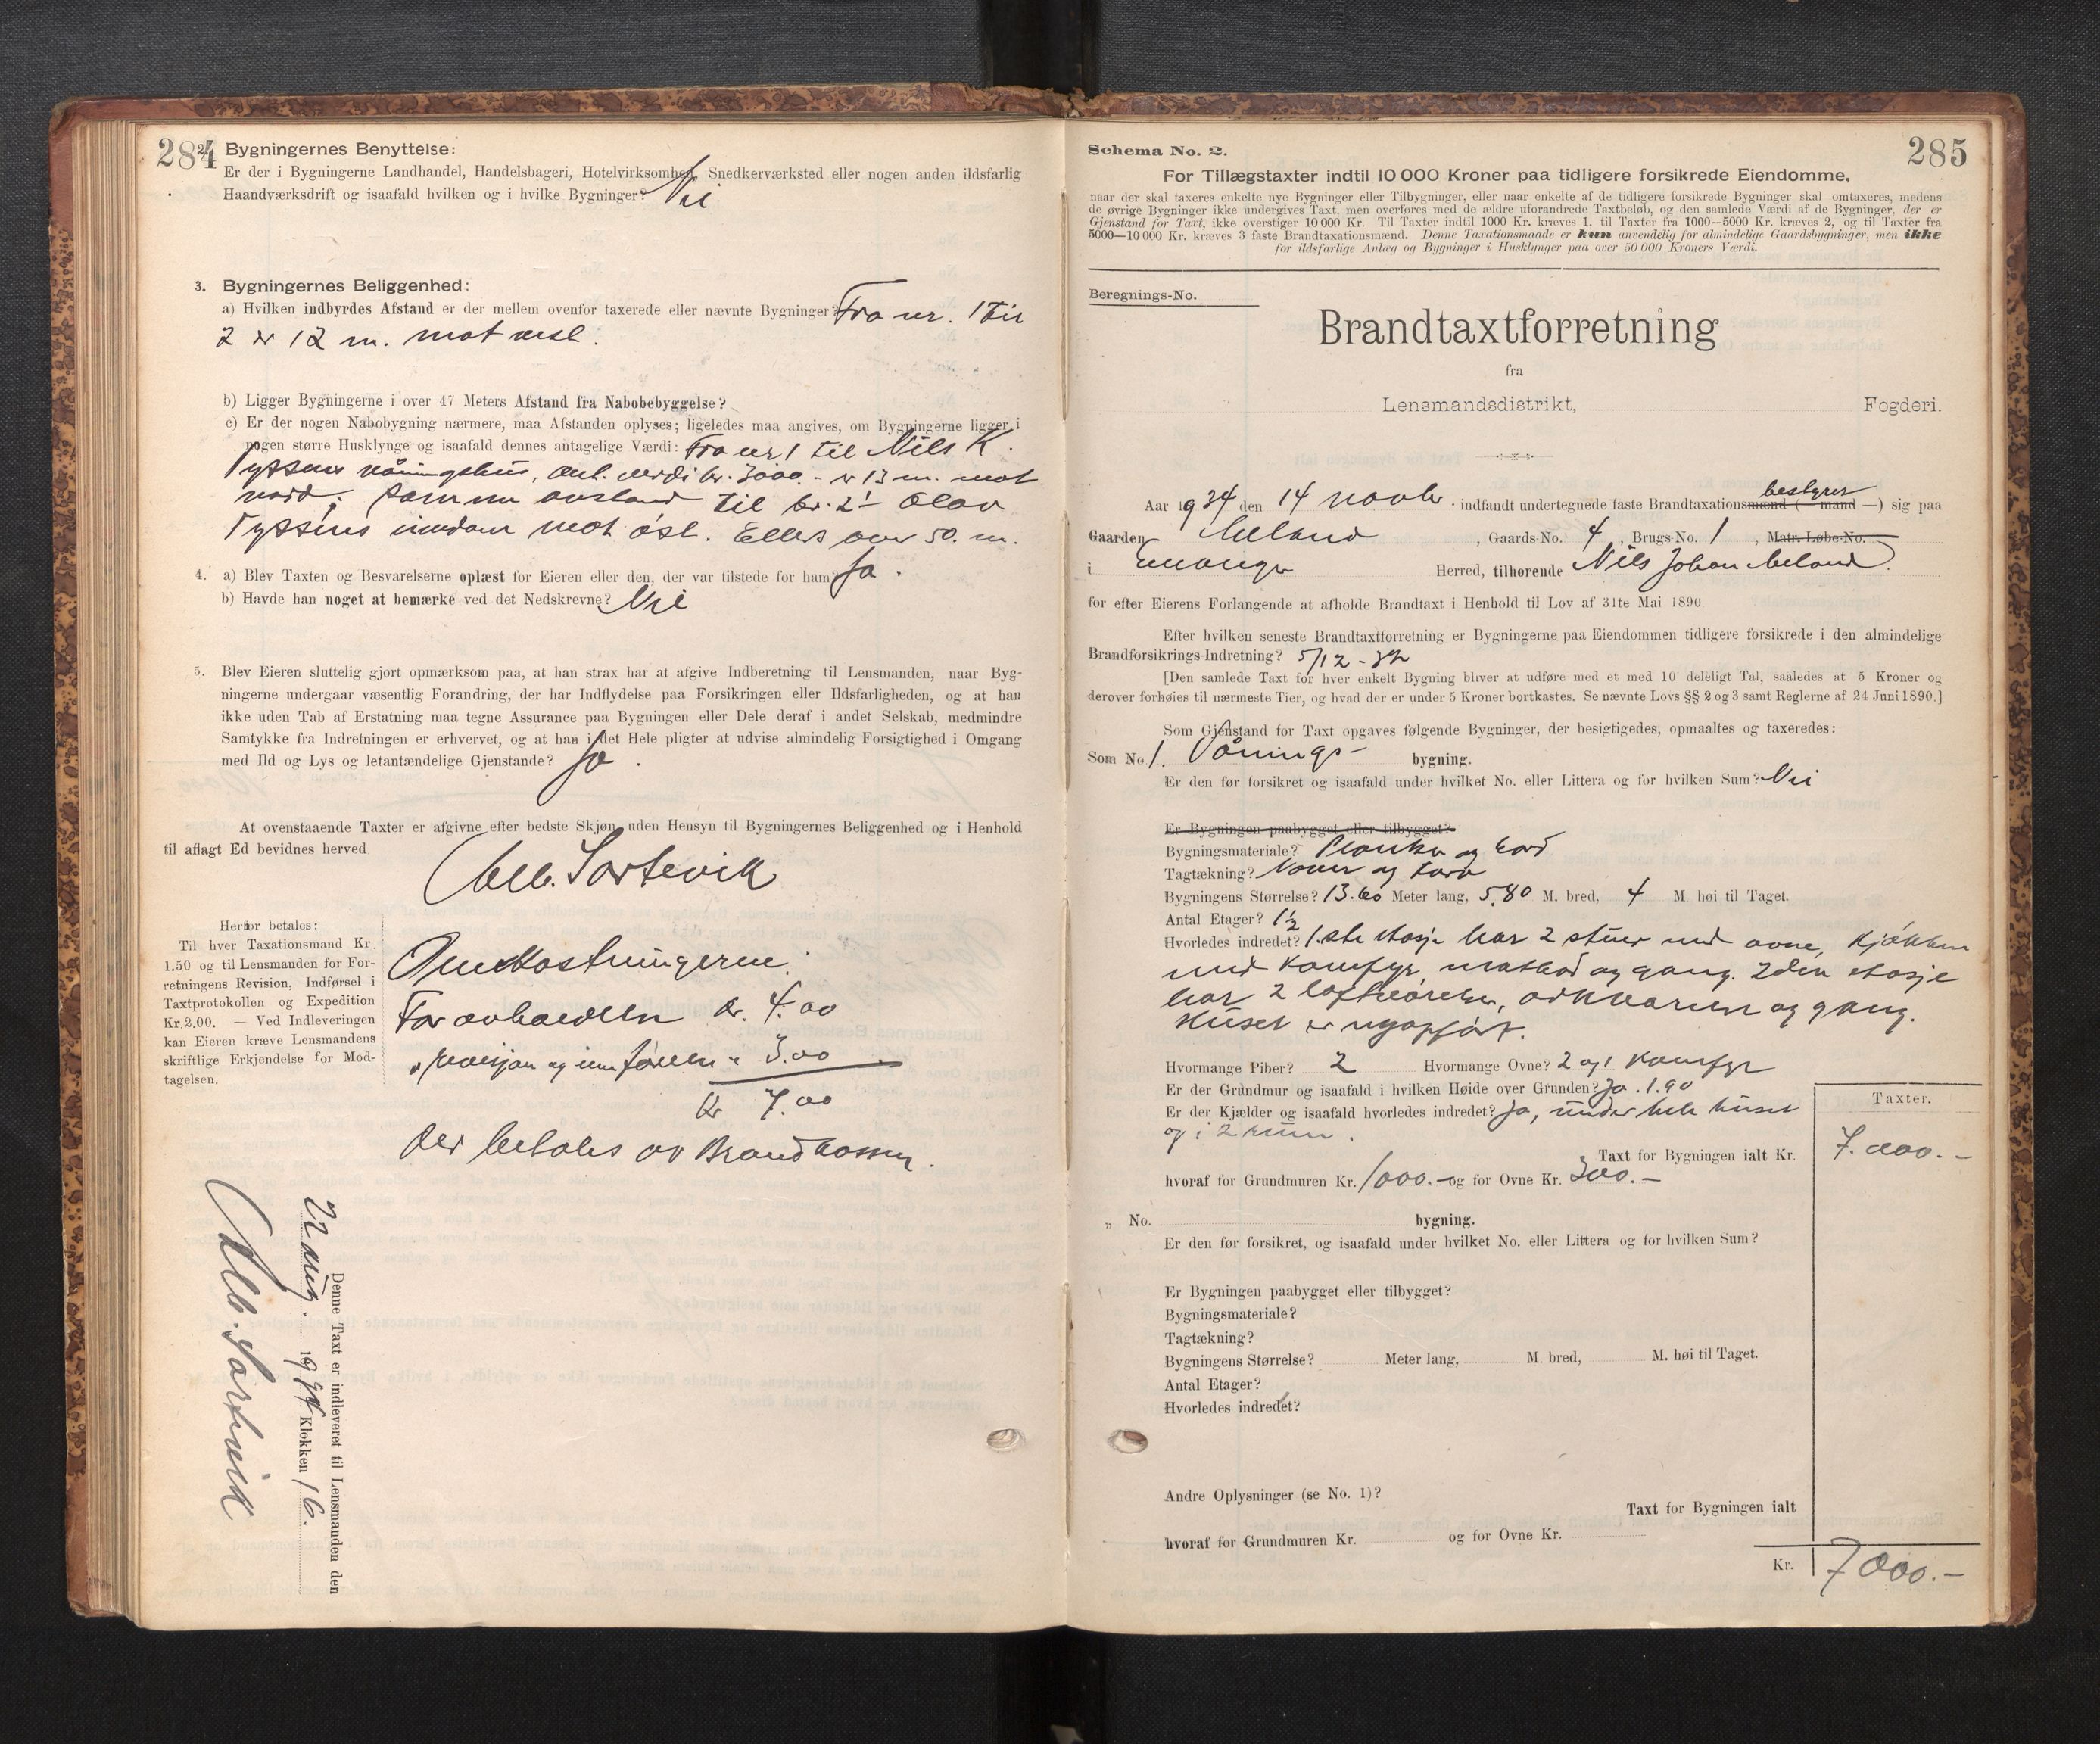 284
2. Bygningernes Benyttelse:
Er der i Bygningerne Landhandel, Handelsbageri, Hotelvirksomhed, Snedkerværksted eller nogen anden ildsfarlig
Haandværksdrift og isaafald hvilken og i hvilke Bygninger? Nei
3. Bygningernes Beliggenhed:
a) Hvilken indbyrdes Afstand er der mellem ovenfor taxerede eller nævnte Bygninger? Fra nr. 1 til
2 er 12 m. mot vest.
b) Ligger Bygningerne i over 47 Meters Afstand fra Nabobebyggelse?
c) Er der nogen Nabobygning nærmere, maa Afstanden oplyses; ligeledes maa angives, om Bygningerne ligger i
nogen større Husklynge og isaafald dennes antagelige Værdi: Fra nr 1 til Nils K.
Tyssens våningshus, ant. verdi kr. 3000.- er 13 m. mot
nord. Samme avstand til br. 2 Olav
Tyssens mot øst. Ellers over 50. m.
4. a) Blev Taxten og Besvarelserne oplæst for Eieren eller den, der var tilstede for ham? Ja.
b) Havde han noget at bemærke ved det Nedskrevne? Nei
5. Blev Eieren sluttelig gjort opmærksom paa, at han strax har at afgive Indberetning til Lensmanden, naar Byg-
ningerne undergaar væsentlig Forandring, der har Indflydelse paa Forsikringen eller Ildsfarligheden, og at han
ikke uden Tab af Erstatning maa tegne Assurance paa Bygningen eller Dele deraf i andet Selskab, medmindre
Samtykke fra Indretningen er erhvervet, og at han i det Hele pligter at udvise almindelig Forsigtighed i Omgang
med Ild og Lys og letantændelige Gjenstande? Ja.
At ovenstaaende Taxter er afgivne efter bedste Skjøn uden Hensyn til Bygningernes Beliggenhed og i Henhold
til aflagt Ed bevidnes herved.
Alb. Sortevik
Herfor betales:
Til hver Taxationsmand Kr.
1.50 og til Lensmanden for For-
retningens Revision, Indførsel i
Taxtprotokollen og Expedition
Kr. 2.00. — Ved Indleveringen
kan Eieren kræve Lensmandens
skriftlige Erkjendelse for Mod-
tagelsen.
Omkostningerne:
For avholdelsen kr. 4.00
" revisjon og innførelsen " 3.00
Kr 7.00
der betales av Brandkassen.
Denne Taxt er indleveret til Lensmanden den
22 aug. 1934 Klokken 16.
Alb. Sortevik
Schema No. 2.
285
For Tillægstaxter indtil 10 000 Kroner paa tidligere forsikrede Eiendomme,
naar der skal taxeres enkelte nye Bygninger eller Tilbygninger, eller naar enkelte af de tidligere forsikrede Bygninger skal omtaxeres, medens
de øvrige Bygninger ikke undergives Taxt, men overføres med de ældre uforandrede Taxtbeløb, og den samlede Værdi af de Bygninger, der er
Gjenstand for Taxt, ikke overstiger 10 000 Kr. Til Taxter indtil 1000 Kr. kræves 1, til Taxter fra 1000—5000 Kr. kræves 2, og til Taxter fra
5000—10 000 Kr. kræves 3 faste Brandtaxationsmænd. Denne Taxationsmaade er kun anvendelig for almindelige Gaardsbygninger, men ikke
for ildsfarlige Anlæg og Bygninger i Husklynger paa over 50 000 Kroners Værdi.
Beregnings-No.
Brandtaxtforretning
fra
Lensmandsdistrikt, Fogderi.
bestyrer
Aar 1934 den 14 novbr. indfandt undertegnede faste Brandtaxationsmænd (— mand —) sig paa
Gaarden Meland, Gaards-No. 4, Brugs-No. 1, Matr. Løbe-No.
i Herred, tilhørende Nils Johan Meland.
for efter Eierens Forlangende at afholde Brandtaxt i Henhold til Lov af 31te Mai 1890
Efter hvilken seneste Brandtaxtforretning er Bygningerne paa Eiendommen tidligere forsikrede i den almindelige
Brandforsikrings-Indretning? 5/12 - 32
[Den samlede Taxt for hver enkelt Bygning bliver at udføre med et med 10 deleligt Tal, saaledes at 5 Kroner og
derover forhøies til nærmeste Tier, og hvad der er under 5 Kroner bortkastes. Se nævnte Lovs §§ 2 og 3 samt Reglerne af 24 Juni 1890.]
Som Gjenstand for Taxt opgaves følgende Bygninger, der besigtigedes, opmaaltes og taxeredes:
Som No. 1. Vånings- bygning.
Er den før forsikret og isaafald under hvilket No. eller Littera og for hvilken Sum? Nei
Er Bygningen paabygget eller tilbygget?
Bygningsmateriale? Planker og bord
Tagtækning? Never og torv
Bygningens Størrelse? 13.60 Meter lang, 5.80 M. bred, 4 M. høi til Taget.
Antal Etager? 1½
Hvorledes indredet? 1.ste etasje har 2 stuer med ovne, kjøkken
med komfyr, matbod og gang. 2den etasje
har 2 loftværelser, arkværelse og gang.
Huset er nyopført.
Hvormange Piber? 2 Hvormange Ovne? 2 og 1 komfyr
Er der Grundmur og isaafald i hvilken Høide over Grunden? Ja. 1.90
Er der Kjælder og isaafald hvorledes indredet? Ja, under hele huset
og i 2 rum.
Taxter.
Taxt for Bygningen ialt Kr. 7.000.-
hvoraf for Grundmuren Kr. 1000.- og for Ovne Kr. 300.-
„ No. bygning.
Er den før forsikret, og isaafald under hvilket No. eller Littera og for hvilken Sum?
Er Bygningen paabygget eller tilbygget?
Bygningsmateriale?
Tagtækning?
Bygningens Størrelse? Meter lang, M. bred, M. høi til Taget.
Antal Etager?
Hvorledes indredet?
Andre Oplysninger (se No. 1)?
Taxt for Bygningen ialt
hvoraf for Grundmuren Kr. og for Ovne Kr.
Kr. 7000.-